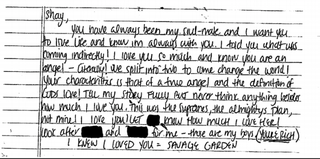 Shay,
You have always been my soul-mate and I want you
to live life and know im always with you. I told you what was
coming indirectly! I love you so much and know you are an
angel - literally! We split into two to come change the world!
Your characteristic is that of a true angel and the definition of
Gods love! Tell my story fully but never think anything besides
how much I love you. This was the supremes, the almightys plan,
not mine! I love you! Let know how much I love her!
Look after and for me - those are my boys (YOU'RE RICH)
I KNEW I LOVED YOU = SAVAGE GARDEN